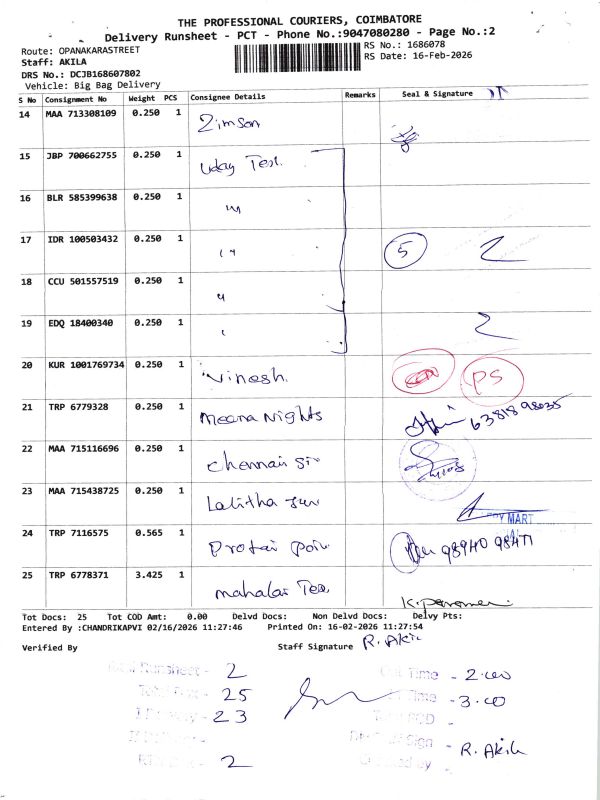 THE PROFESSIONAL COURIERS, COIMBATORE
Delivery Runsheet - PCT - Phone No.:9047080280 - Page No.:2
Route: OPANAKARASTREET
RS No.: 1686078
Staff: AKILA
RS Date: 16-Feb-2026
DRS No.: DCJB168607802
Vehicle: Big Bag Delivery
S No Consignment No Weight PCS Consignee Details Remarks Seal & Signature
14 MAA 713308109 0.250 1 Zimson
15 JBP 700662755 0.250 1 Uday Tex.
16 BLR 585399638 0.250 1
17 IDR 100503432 0.250 1 5 2
18 CCU 501557519 0.250 1
19 EDQ 18400340 0.250 1 2
20 KUR 1001769734 0.250 1 Vinesh. PS
21 TRP 6779328 0.250 1 Meena Nights
22 MAA 715116696 0.250 1 Chennai
23 MAA 715438725 0.250 1 Lalitha
MART
24 TRP 7116575 0.565 1
25 TRP 6778371 3.425 1 Tex.
Tot Docs: 25 Tot COD Amt: 0.00 Delvd Docs: Non Delvd Docs: Delvy Pts:
Entered By :CHANDRIKAPVI 02/16/2026 11:27:46 Printed On: 16-02-2026 11:27:54
Verified By Staff Signature R. Akil
Runsheet - 2 Out Time - 2.00
Total - 25 Time - 3.00
- 23 Total COD -
Sign - R. Akil
- 2